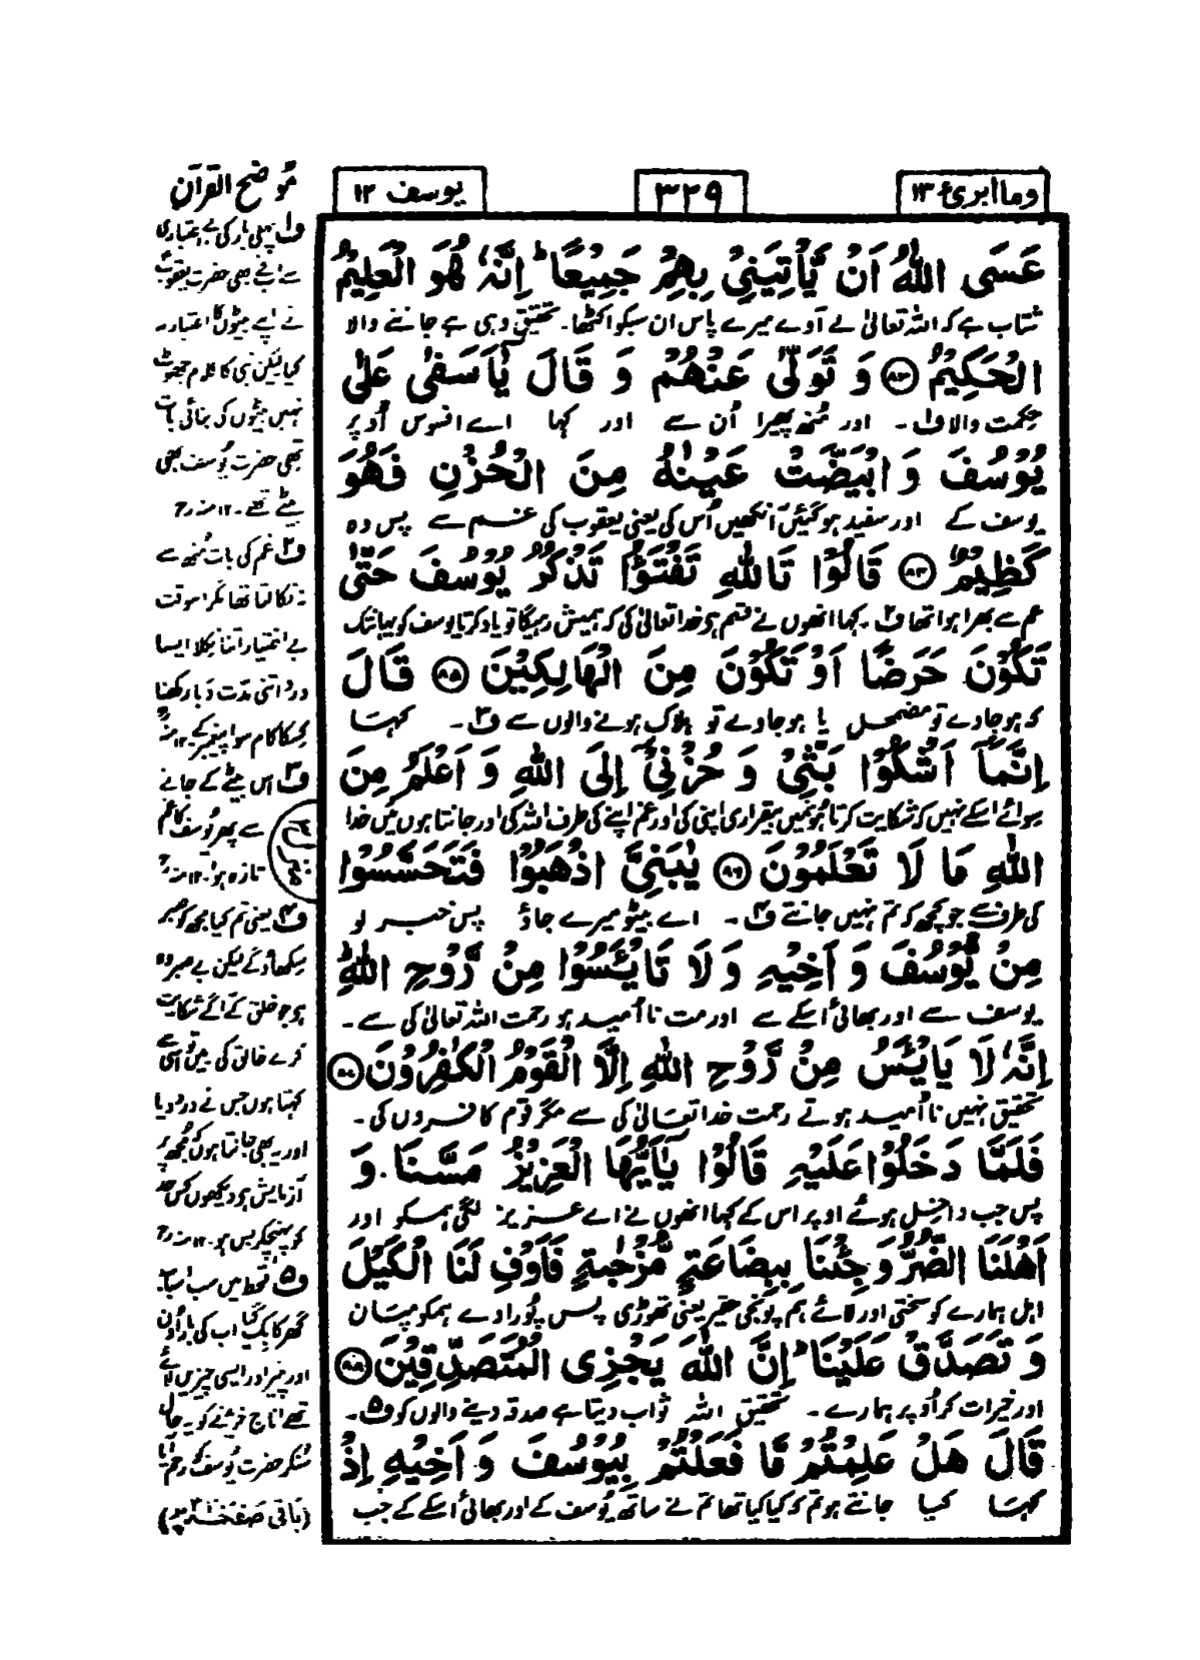 وما ابرئ ۱۳
۳۲۹
یوسف ۱۲
عَسَى اللّٰهُ اَنْ يَّاْتِيَنِيْ بِهِمْ جَمِيْعًا ؕ اِنَّهٗ هُوَ الْعَلِيْمُ
شتاب ہے کہ اللہ تعالیٰ لے آوے میرے پاس ان سبکو اکٹھا۔ تحقیق وہی ہے جاننے والا
الْحَكِيْمُ ﴿۸۳﴾ وَ تَوَلّٰى عَنْهُمْ وَ قَالَ يٰۤاَسَفٰى عَلٰى
حکمت والا ف۱۔ اور منہ پھیرا اُن سے اور کہا اے افسوس اُوپر
يُوْسُفَ وَ ابْيَضَّتْ عَيْنٰهُ مِنَ الْحُزْنِ فَهُوَ
یوسف کے اور سفید ہوگئیں آنکھیں اُس کی یعنی یعقوب کی غم سے پس وہ
كَظِيْمٌ ﴿۸۴﴾ قَالُوْا تَاللّٰهِ تَفْتَؤُا تَذْكُرُ يُوْسُفَ حَتّٰى
غم سے بھرا ہوا تھا ف۲۔ کہا انھوں نے قسم ہو خدا تعالیٰ کی کہ ہمیش رہیگا تو یاد کرتا یوسف کو یہانتک
تَكُوْنَ حَرَضًا اَوْ تَكُوْنَ مِنَ الْهَالِكِيْنَ ﴿۸۵﴾ قَالَ
کہ ہوجاوے تو مضمحل یا ہوجاوے تو ہلاک ہونے والوں سے ف۳۔ کہتا
اِنَّمَاۤ اَشْكُوْا بَثِّيْ وَ حُزْنِيْۤ اِلَى اللّٰهِ وَ اَعْلَمُ مِنَ
سوائے اسکے نہیں کہ شکایت کرتا ہوں میں بیقراری اپنی کی اور غم اپنے کی طرف اللہ کی اور جانتا ہوں میں خدا
اللّٰهِ مَا لَا تَعْلَمُوْنَ ﴿۸۶﴾ يٰبَنِيَّ اذْهَبُوْا فَتَحَسَّسُوْا
کی طرف سے جو کچھ کہ تم نہیں جانتے ف۴۔ اے بیٹو میرے جاؤ پس خبر لو
مِنْ يُّوْسُفَ وَ اَخِيْهِ وَ لَا تَايْـَٔسُوْا مِنْ رَّوْحِ اللّٰهِ ؕ
یوسف سے اور بھائی اُسکے سے اور مت نا اُمید ہو رحمت اللہ تعالیٰ کی سے۔
اِنَّهٗ لَا يَايْـَٔسُ مِنْ رَّوْحِ اللّٰهِ اِلَّا الْقَوْمُ الْكٰفِرُوْنَ ﴿۸۷﴾
تحقیق نہیں نا اُمید ہوتے رحمت خدا تعالیٰ کی سے مگر قوم کافروں کی۔
فَلَمَّا دَخَلُوْا عَلَيْهِ قَالُوْا يٰۤاَيُّهَا الْعَزِيْزُ مَسَّنَا وَ
پس جب داخل ہوئے اوپر اس کے کہا انھوں نے اے عزیز لگی ہمکو اور
اَهْلَنَا الضُّرُّ وَ جِئْنَا بِبِضَاعَةٍ مُّزْجٰىةٍ فَاَوْفِ لَنَا الْكَيْلَ
اہل ہمارے کو سختی اور لائے ہم پونجی حقیر یعنی تھوڑی پس پُورا دے ہمکو میان
وَ تَصَدَّقْ عَلَيْنَا ؕ اِنَّ اللّٰهَ يَجْزِى الْمُتَصَدِّقِيْنَ ﴿۸۸﴾
اور خیرات کر اُوپر ہمارے۔ تحقیق اللہ ثواب دیتا ہے صدقہ دینے والوں کو ف۵۔
قَالَ هَلْ عَلِمْتُمْ مَّا فَعَلْتُمْ بِيُوْسُفَ وَ اَخِيْهِ اِذْ
کہتا کیا جانتے ہو تم کہ کیا کیا تھا تم نے ساتھ یُوسف کے اور بھائی اُسکے کے جب
موضح القرآن
ف۱ پہلی بار کی بے اعتباری
سے ابکے بھی حضرت یعقوبؑ
نے اپنے بیٹوں کا اعتبار نہ
کیا لیکن نبی کا کلام جھوٹ
نہیں بیٹوں کی بنائی بات
تھی حضرت یُوسف بھی
بیٹے تھے۔ ۱۲ منہ رح
ف۲ غم کی بات مُنھ سے
نہ نکالتا تھا مگر اسوقت
بے اختیار اتنا نکلا ایسا
درد اتنی مدّت دبا رکھنا
کسکا کام سوا پیغمبر کے۔ ۱۲ منہ رح
ف۳ اس بیٹے کے جانے
سے پھر یُوسف کا غم
تازہ ہوا۔ ۱۲ منہ رح
ف۴ یعنی تم کیا مجھ کو صبر
سکھاؤ گے لیکن بے صبر وہ
ہو جو خلق کے آگے شکایت
کرے خالق کی میں تو اُسی سے
کہتا ہوں جس نے درد دیا
اور یہ بھی جانتا ہوں کہ مجھ پر
آزمایش ہو دیکھوں کس حد
کو پہنچکر بس ہو۔ ۱۲ منہ رح
ف۵ قحط میں سب اسباب
گھر کا بک گیا اب کی بار اُون
اور پنیر اور ایسی چیزیں لائے
تھے اناج خریدنے کو یہ حال
سُنکر حضرت یُوسف کو رحم آیا
(باقی صفحہ ۳۳۰ پر)